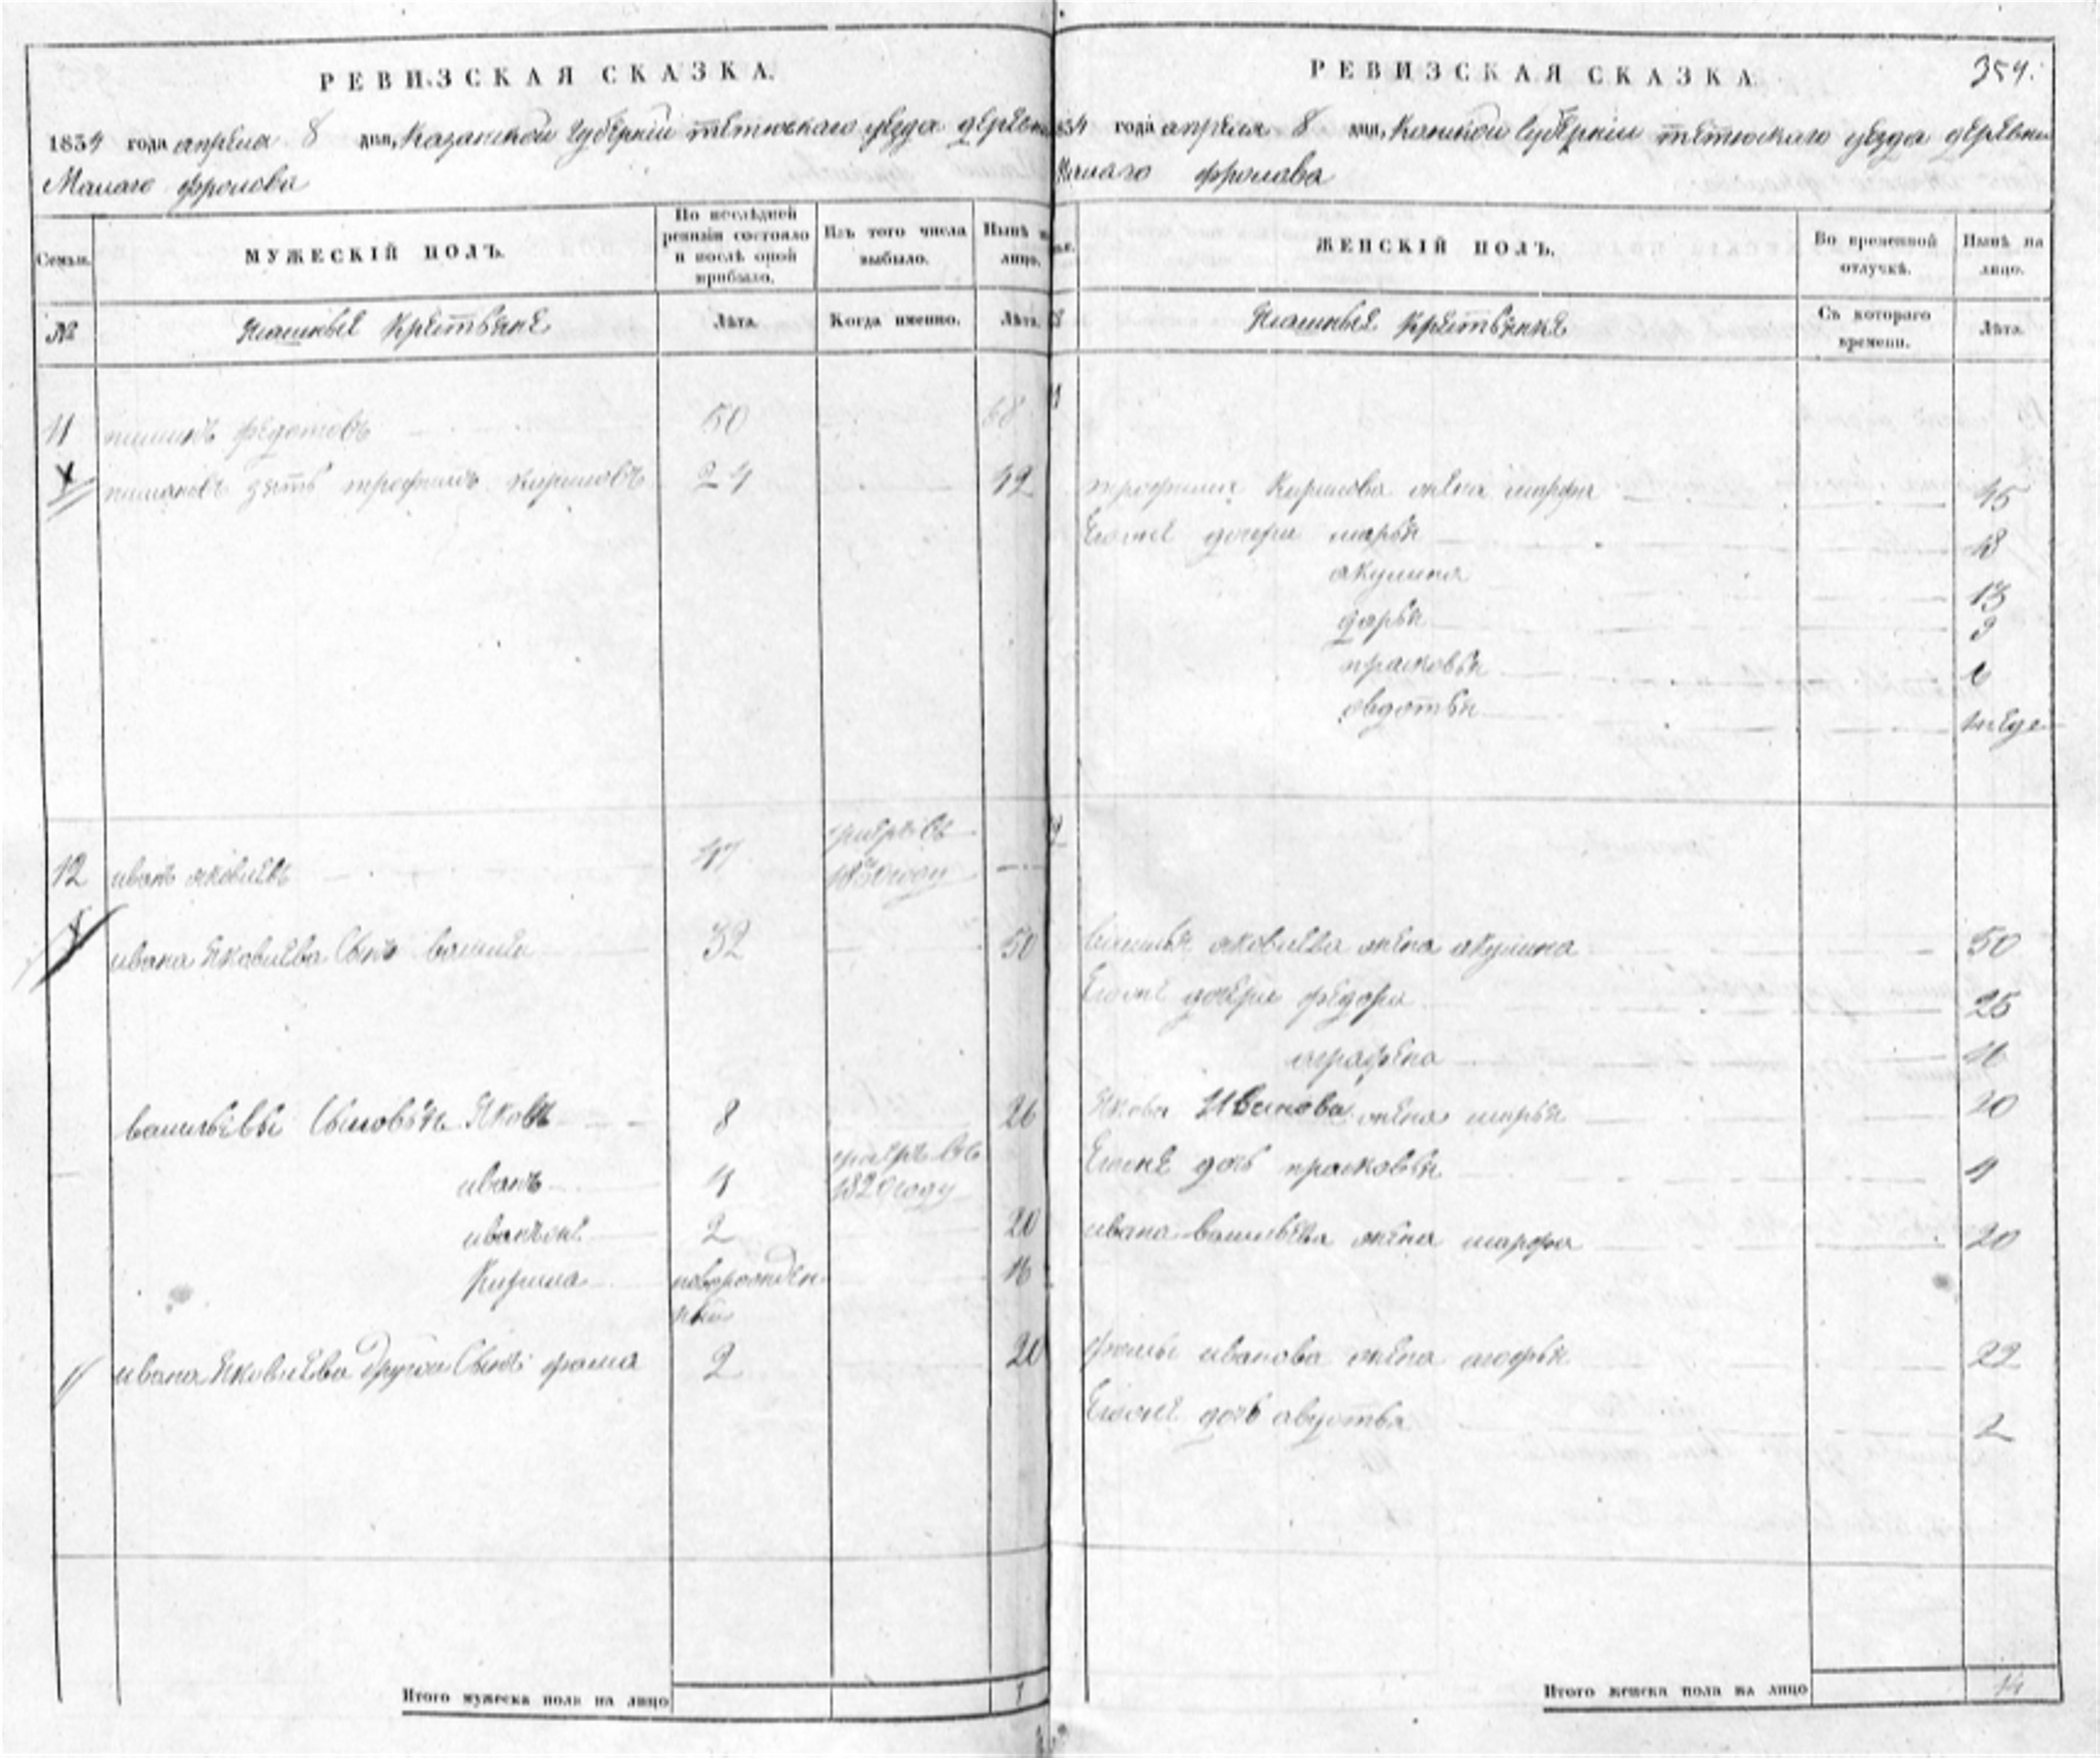 РЕВИЗСКАЯ СКАЗКА.
1834 года апреля 8 дня, Казанской губернiи тетюскаго уезда деревни
Малаго фролова
Семьи.
МУЖЕСКIЙ ПОЛЪ.
По послѣдней ревизiи состояло и послѣ оной прибыло.
Изъ того числа выбыло.
Нынѣ на лицо.
№
Крестьяне
Лѣта.
Когда именно.
Лѣта.
11 федотовъ 50 68
зять трофимъ Кириловъ 24 42
12 иванъ яковлевъ 47 умре въ
1830 году
ивана Яковлева Сынъ васили 32 50
васильевы Сыновья Яковъ 8 26
иванъ 4 умре въ
1820 году
иванъ же 2 20
Кирила новорожден 16
ный
ивана Яковлева другой Сынъ фома 2 20
Итого мужеска пола на лицо
РЕВИЗСКАЯ СКАЗКА
354.
1834 года апреля 8 дня, губернiи тетюскаго уезда деревни
Малаго фролова
ЖЕНСКIЙ ПОЛЪ.
Во временной отлучкѣ.
Нынѣ на лицо.
Крестьянки
Съ котораго времени.
Лѣта.
трофима Кирилова жена марфа 45
Егоже дочери марья 18
акулина 13
дарья 9
прасковья
овдотья
василья яковлева жена акулина 50
Егоже дочери федора 25
аграфена 16
Якова Иванова жена марья 20
Егоже дочь прасковья 4
ивана васильева жена марфа 20
фомы иванова жена агофья 22
Егоже дочь авдотья 2
Итого женска пола на лицо 14